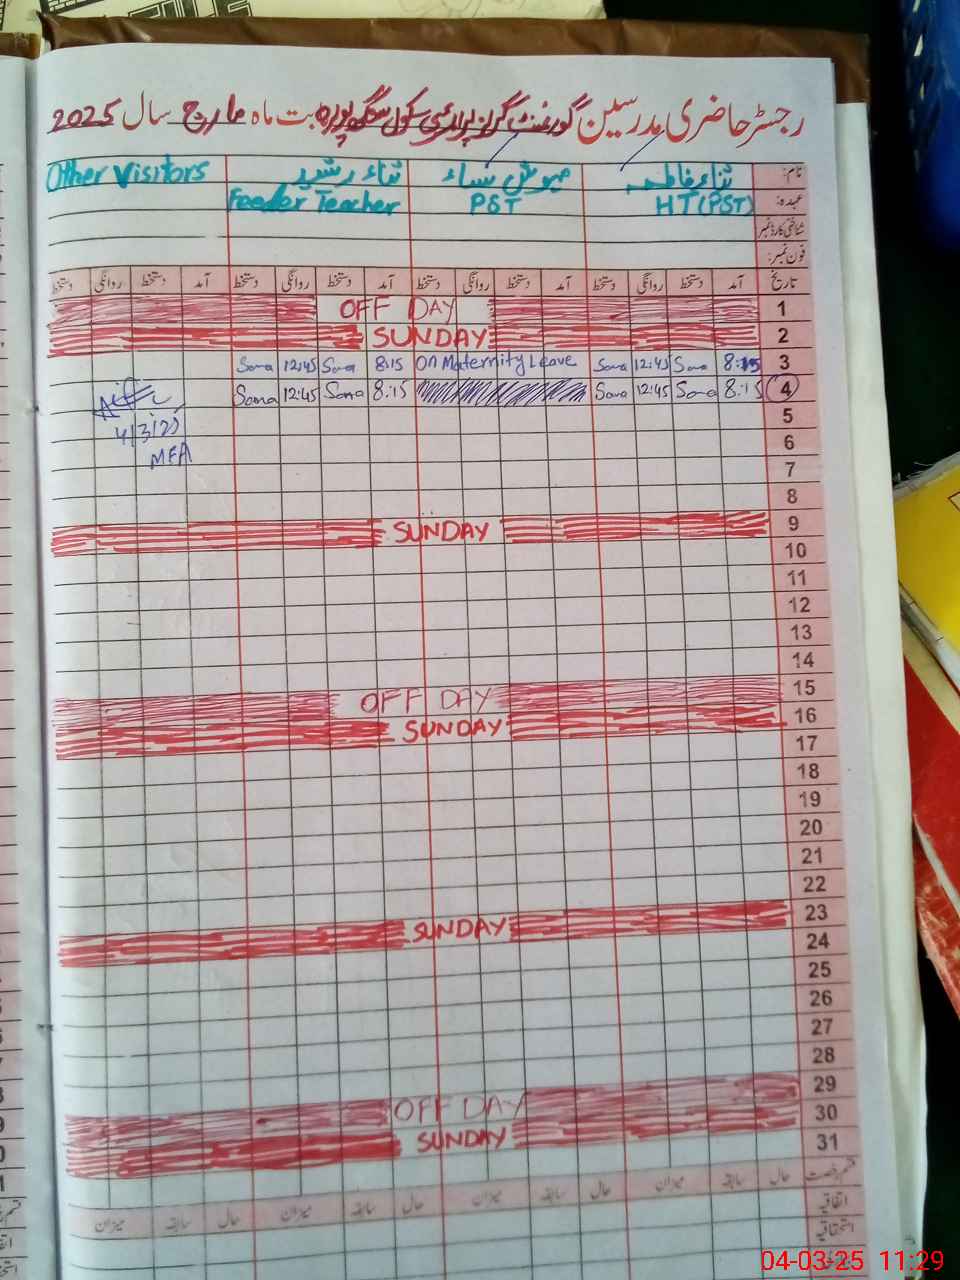 رجسٹر حاضری مدرسین گورنمنٹ گرلز پرائمری سکول سنگھ پورہ بابت ماہ مارچ سال 2025
نام: ثناء فاطمہ مہوش ثناء ثناء رشید Other Visitors
عہدہ: HT(PST) PST Feeder Teacher
شناختی کارڈ نمبر
فون نمبر:
تاریخ آمد دستخط روانگی دستخط آمد دستخط روانگی دستخط آمد دستخط روانگی دستخط آمد دستخط روانگی دستخط
1 OFF DAY
2 SUNDAY
3 8:15 Sana 12:45 Sana On Maternity Leave 8:15 Sana 12:45 Sana
4 8:15 Sana 12:45 Sana 8:15 Sana 12:45 Sana
5 4/3/25
6 MEA
7
8
9 SUNDAY
10
11
12
13
14
15 OFF DAY
16 SUNDAY
17
18
19
20
21
22
23 SUNDAY
24
25
26
27
28
29 OFF DAY
30 SUNDAY
31
قسم رخصت حال سابقہ میزان حال سابقہ میزان حال سابقہ میزان حال سابقہ میزان
اتفاقیہ
استحقاقیہ
04-03-25 11:29